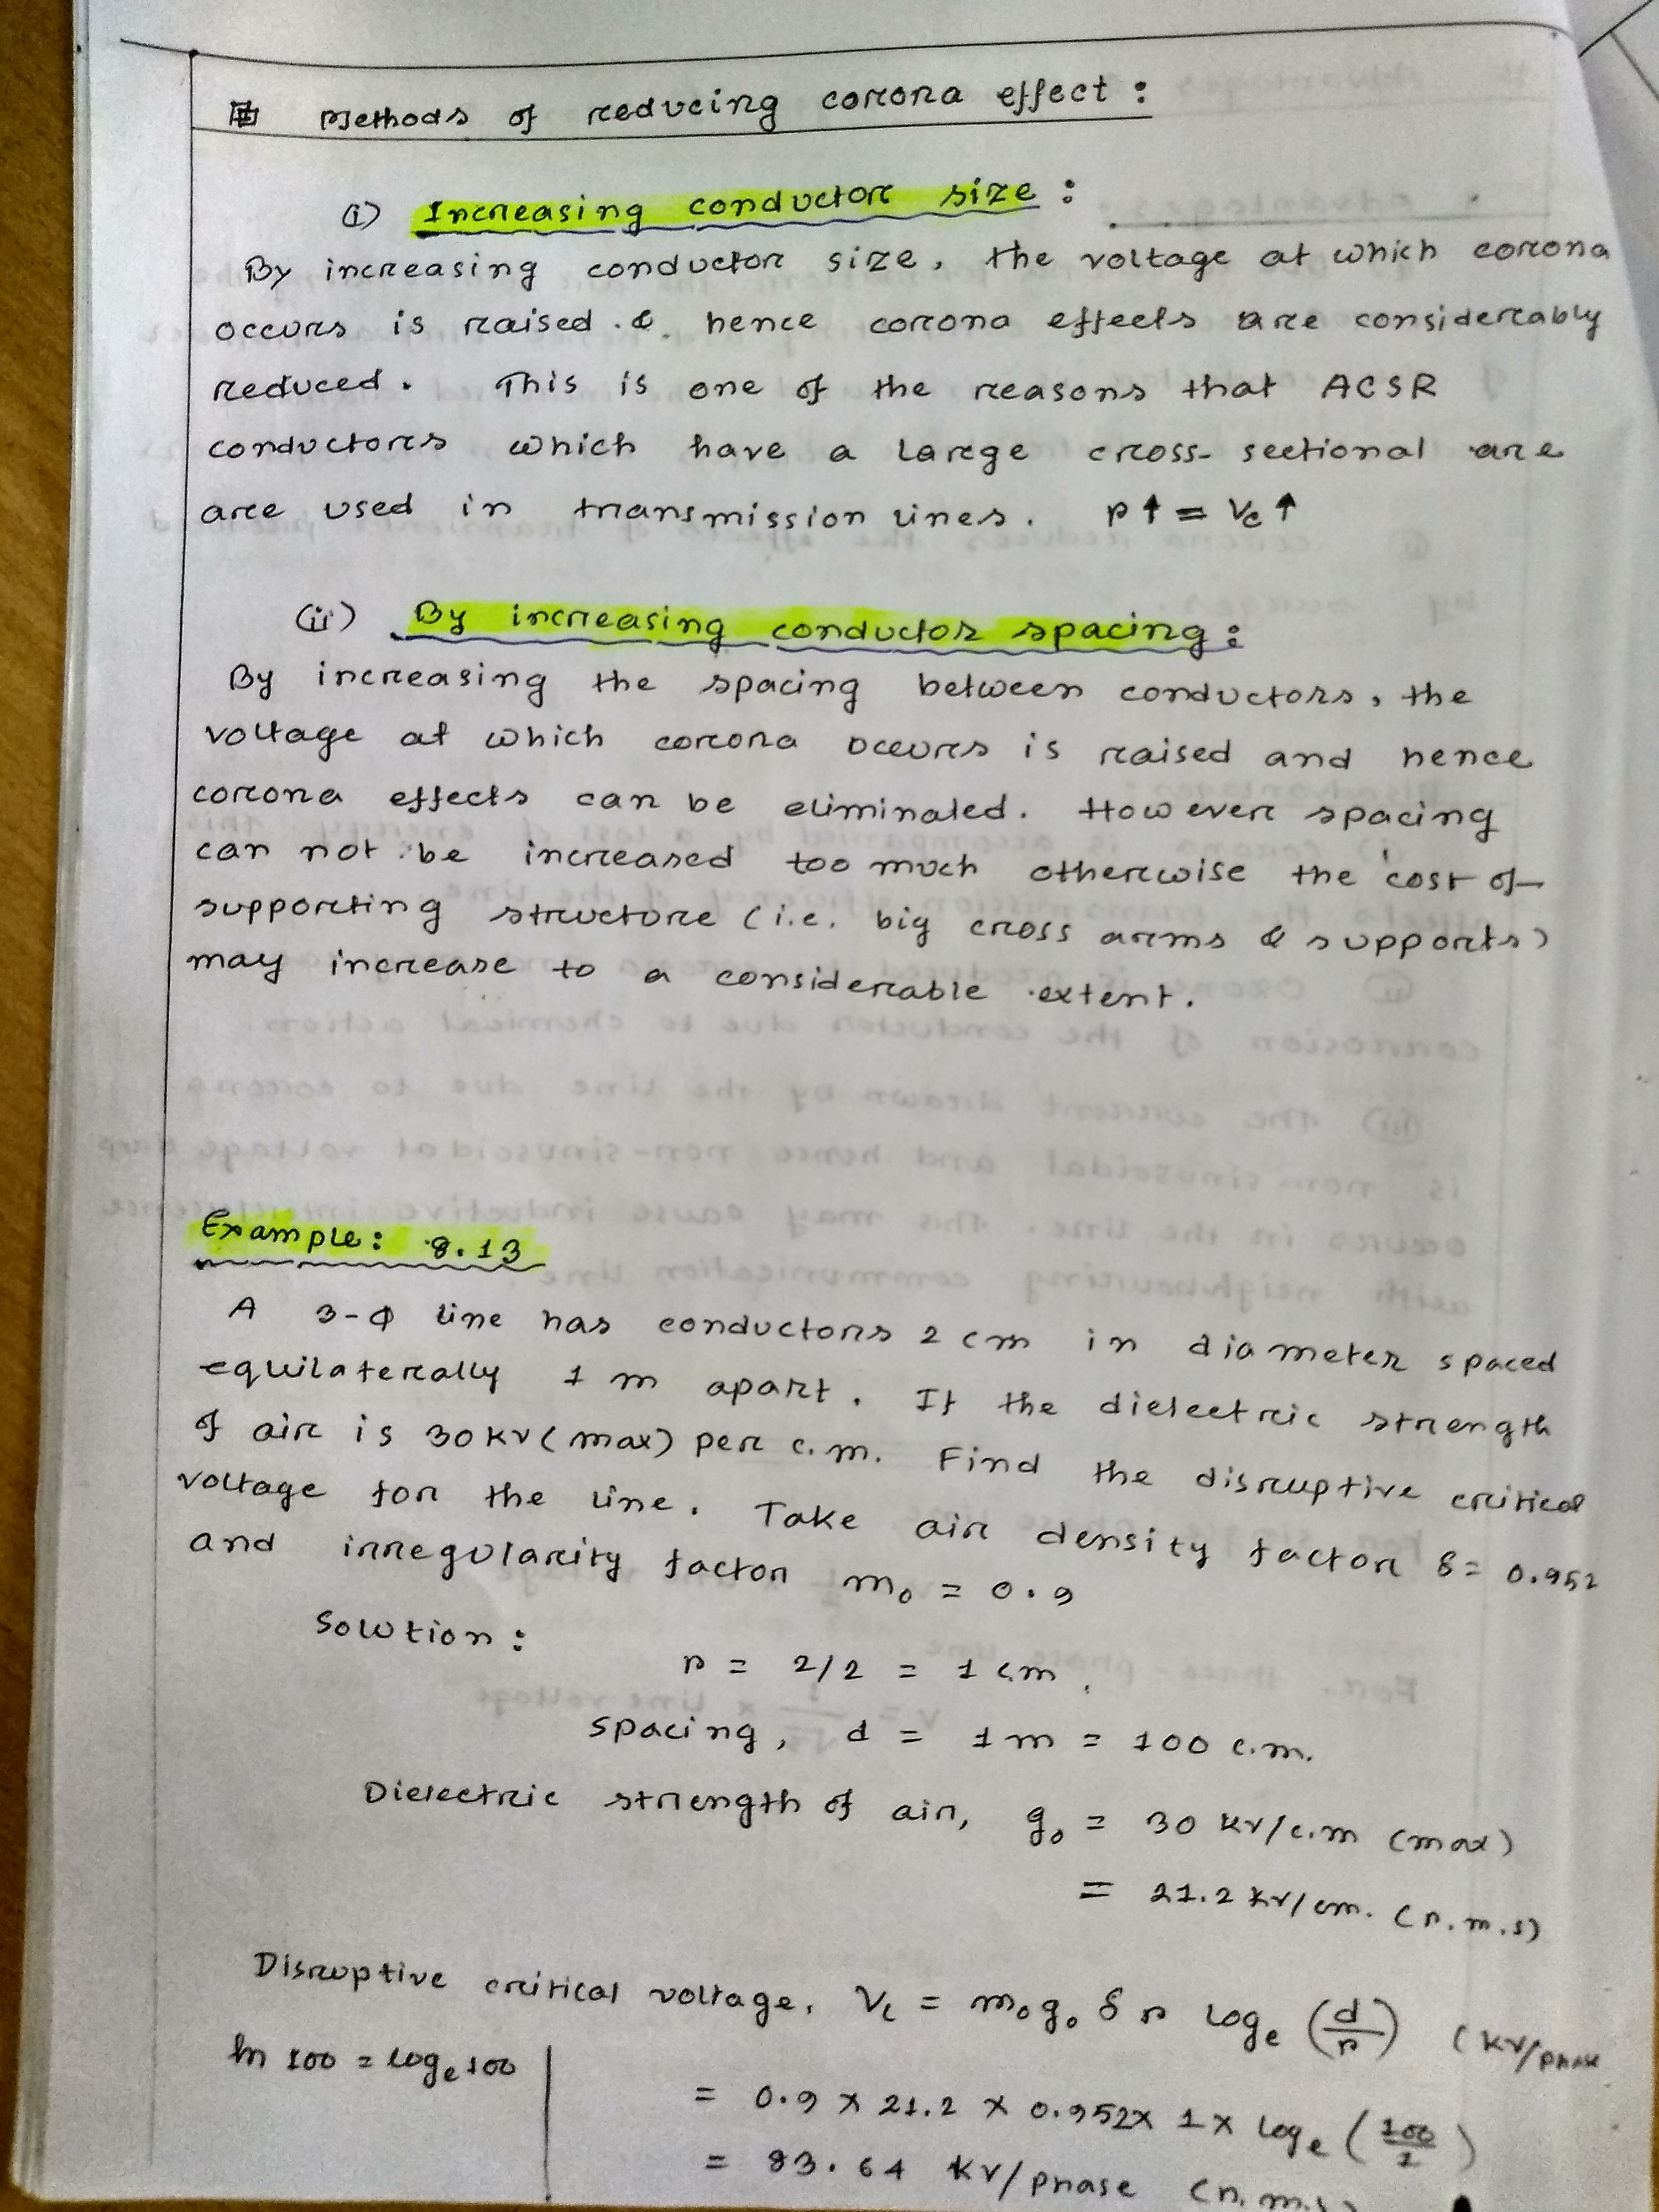 Methods of reducing corona effect :
(i) Increasing conductor size :
By increasing conductor size, the voltage at which corona
occurs is raised & hence corona effects are considerably
reduced. This is one of the reasons that ACSR
conductors which have a large cross-sectional are
are used in transmission lines. r↑ = Vc↑
(ii) By increasing conductor spacing :
By increasing the spacing between conductors, the
voltage at which corona occurs is raised and hence
corona effects can be eliminated. However spacing
can not be increased too much otherwise the cost of
supporting structure (i.e. big cross arms & supports)
may increase to a considerable extent.
Example : 8.13
A 3-Φ line has conductors 2 cm in diameter spaced
equilaterally 1 m apart. If the dielectric strength
of air is 30 kv (max) per c.m. Find the disruptive critical
voltage for the line. Take air density factor δ = 0.952
and irregularity factor m₀ = 0.9
Solution :
r = 2/2 = 1 cm.
spacing, d = 1 m = 100 c.m.
Dielectric strength of air, g₀ = 30 kv/c.m (max)
= 21.2 kv/cm. (r.m.s)
Disruptive critical voltage, Vc = m₀ g₀ δ r logₑ (d/r) (kv/phase
ln 100 = logₑ 100
= 0.9 x 21.2 x 0.952 x 1 x logₑ (100/1)
= 83.64 kv/phase (r.m.s)